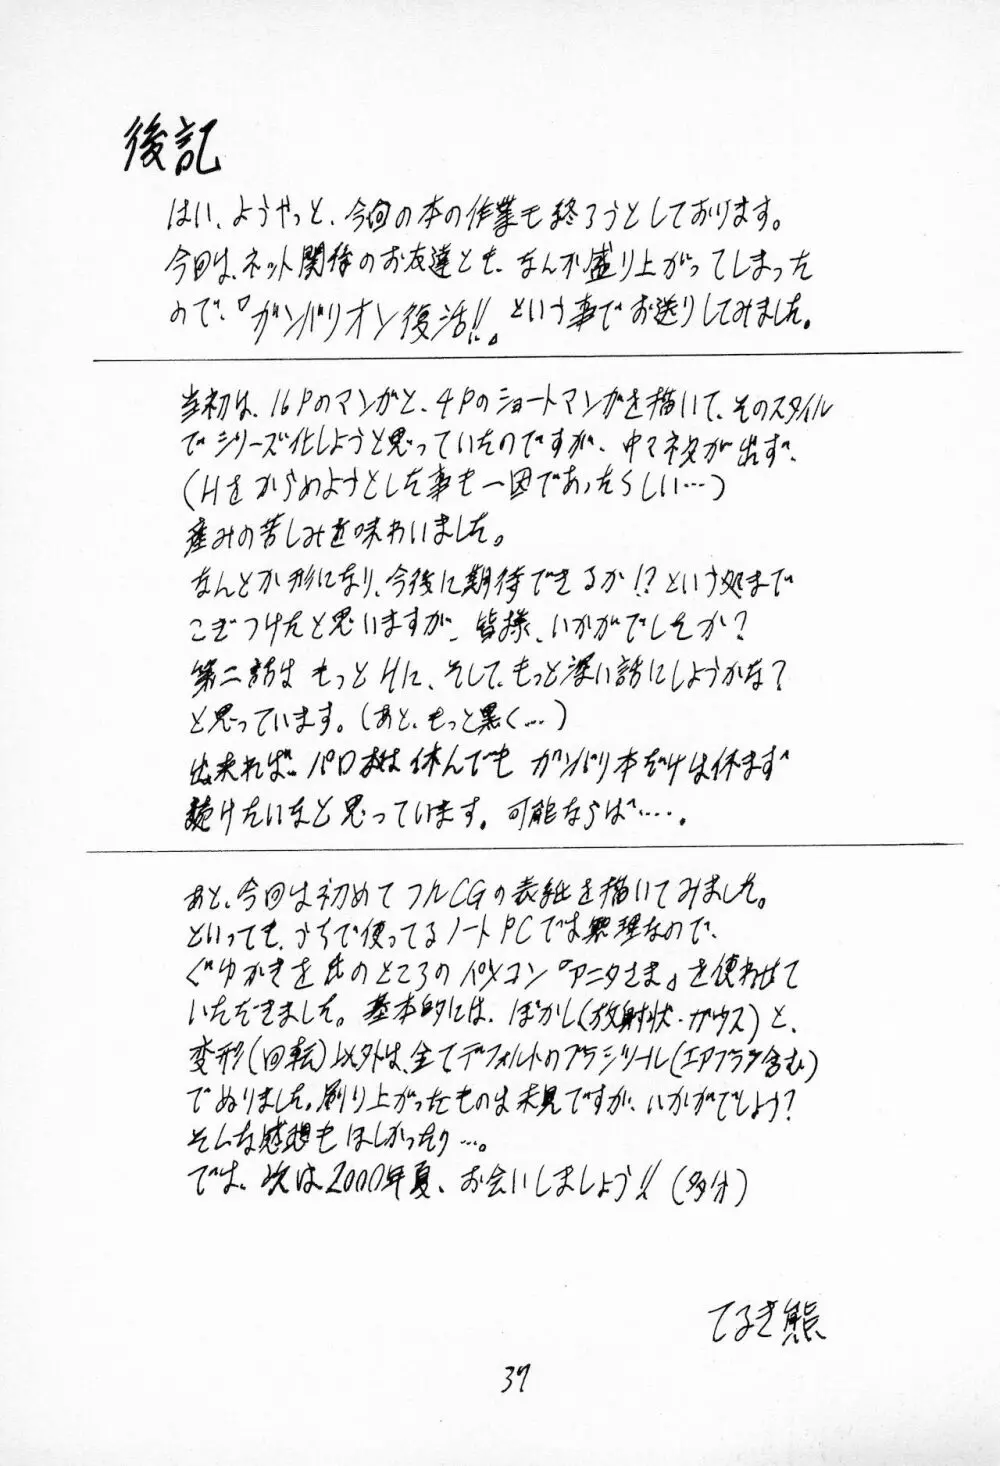 後記
はい、ようやっと、今回の本の作業も終ろうとしております。
今回は、ネット関係のお友達とも、なんか盛り上がってしまった
ので、『ガンバリオン復活!!』という事でお送りしてみました。
当初は、16Pのマンガと、4Pのショートマンガを描いて、そのスタイル
でシリーズ化しようと思っていたのですが、中々ネタが出ず、
(Hをからめようとした事も一因であったらしい…)
産みの苦しみを味わいました。
なんとか形になり、今後に期待できるか!?という処まで
こぎつけたと思いますが、皆様、いかがでしたか?
第二話は もっとHに、そして、もっと深い話にしようかな?
と思っています。(あと、もっと黒く…)
出来れば、パロ本は休んでも ガンバリ本だけは休まず
続けたいなと思っています。可能ならば…。
あと、今回は初めてフルCGの表紙を描いてみました。
といっても、うちで使ってるノートPCでは無理なので、
ぐゆかき を 氏のところのパソコン『アニタさま』を使わせて
いただきました。基本的には、ぼかし(放射状・ガウス)と、
変形(回転)以外は、全てデフォルトのブラシツール(エアブラシ含む)
でぬりました。刷り上がったものは未見ですが、いかがでしょう?
そんな感想もほしかったり…。
では、次は2000年夏、お会いしましょう!!(多分)
てるき熊
37